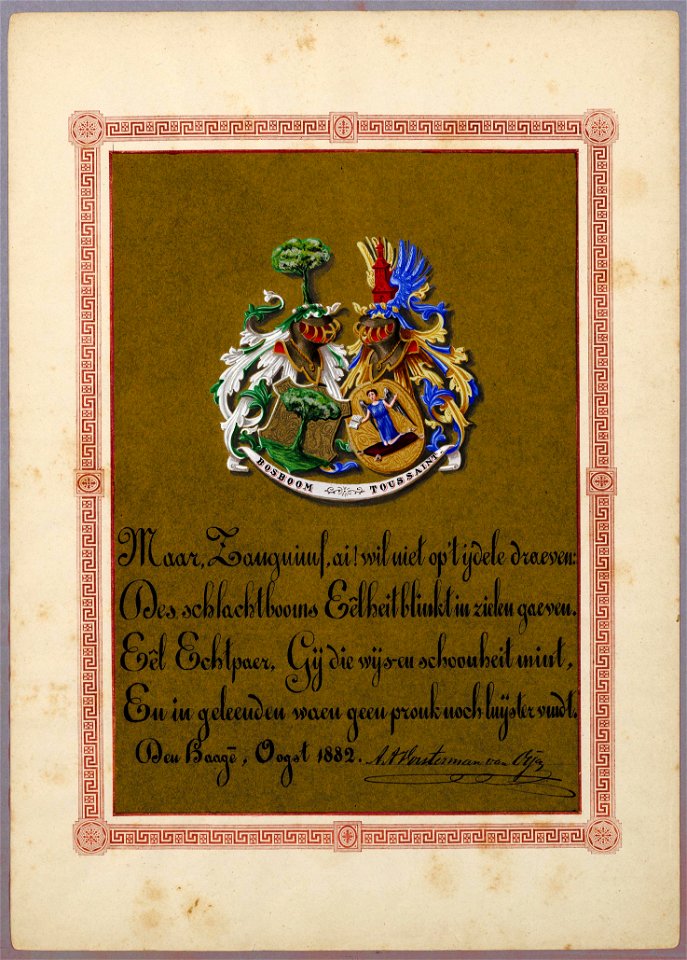 BOSBOOM TOUSSAINT
Maar, Zangnimf, ai! wil niet op 't ijdele draeven:
Des schlachtbooms Eêlheit blinkt in zielen gaeven.
Eêl Echtpaer, Gij die wijs- en schoonheit mint,
En in geleenden waen geen pronk noch luijster vindt.
Den Haagē, Oogst 1882. A. A Vorsterman van Oijen